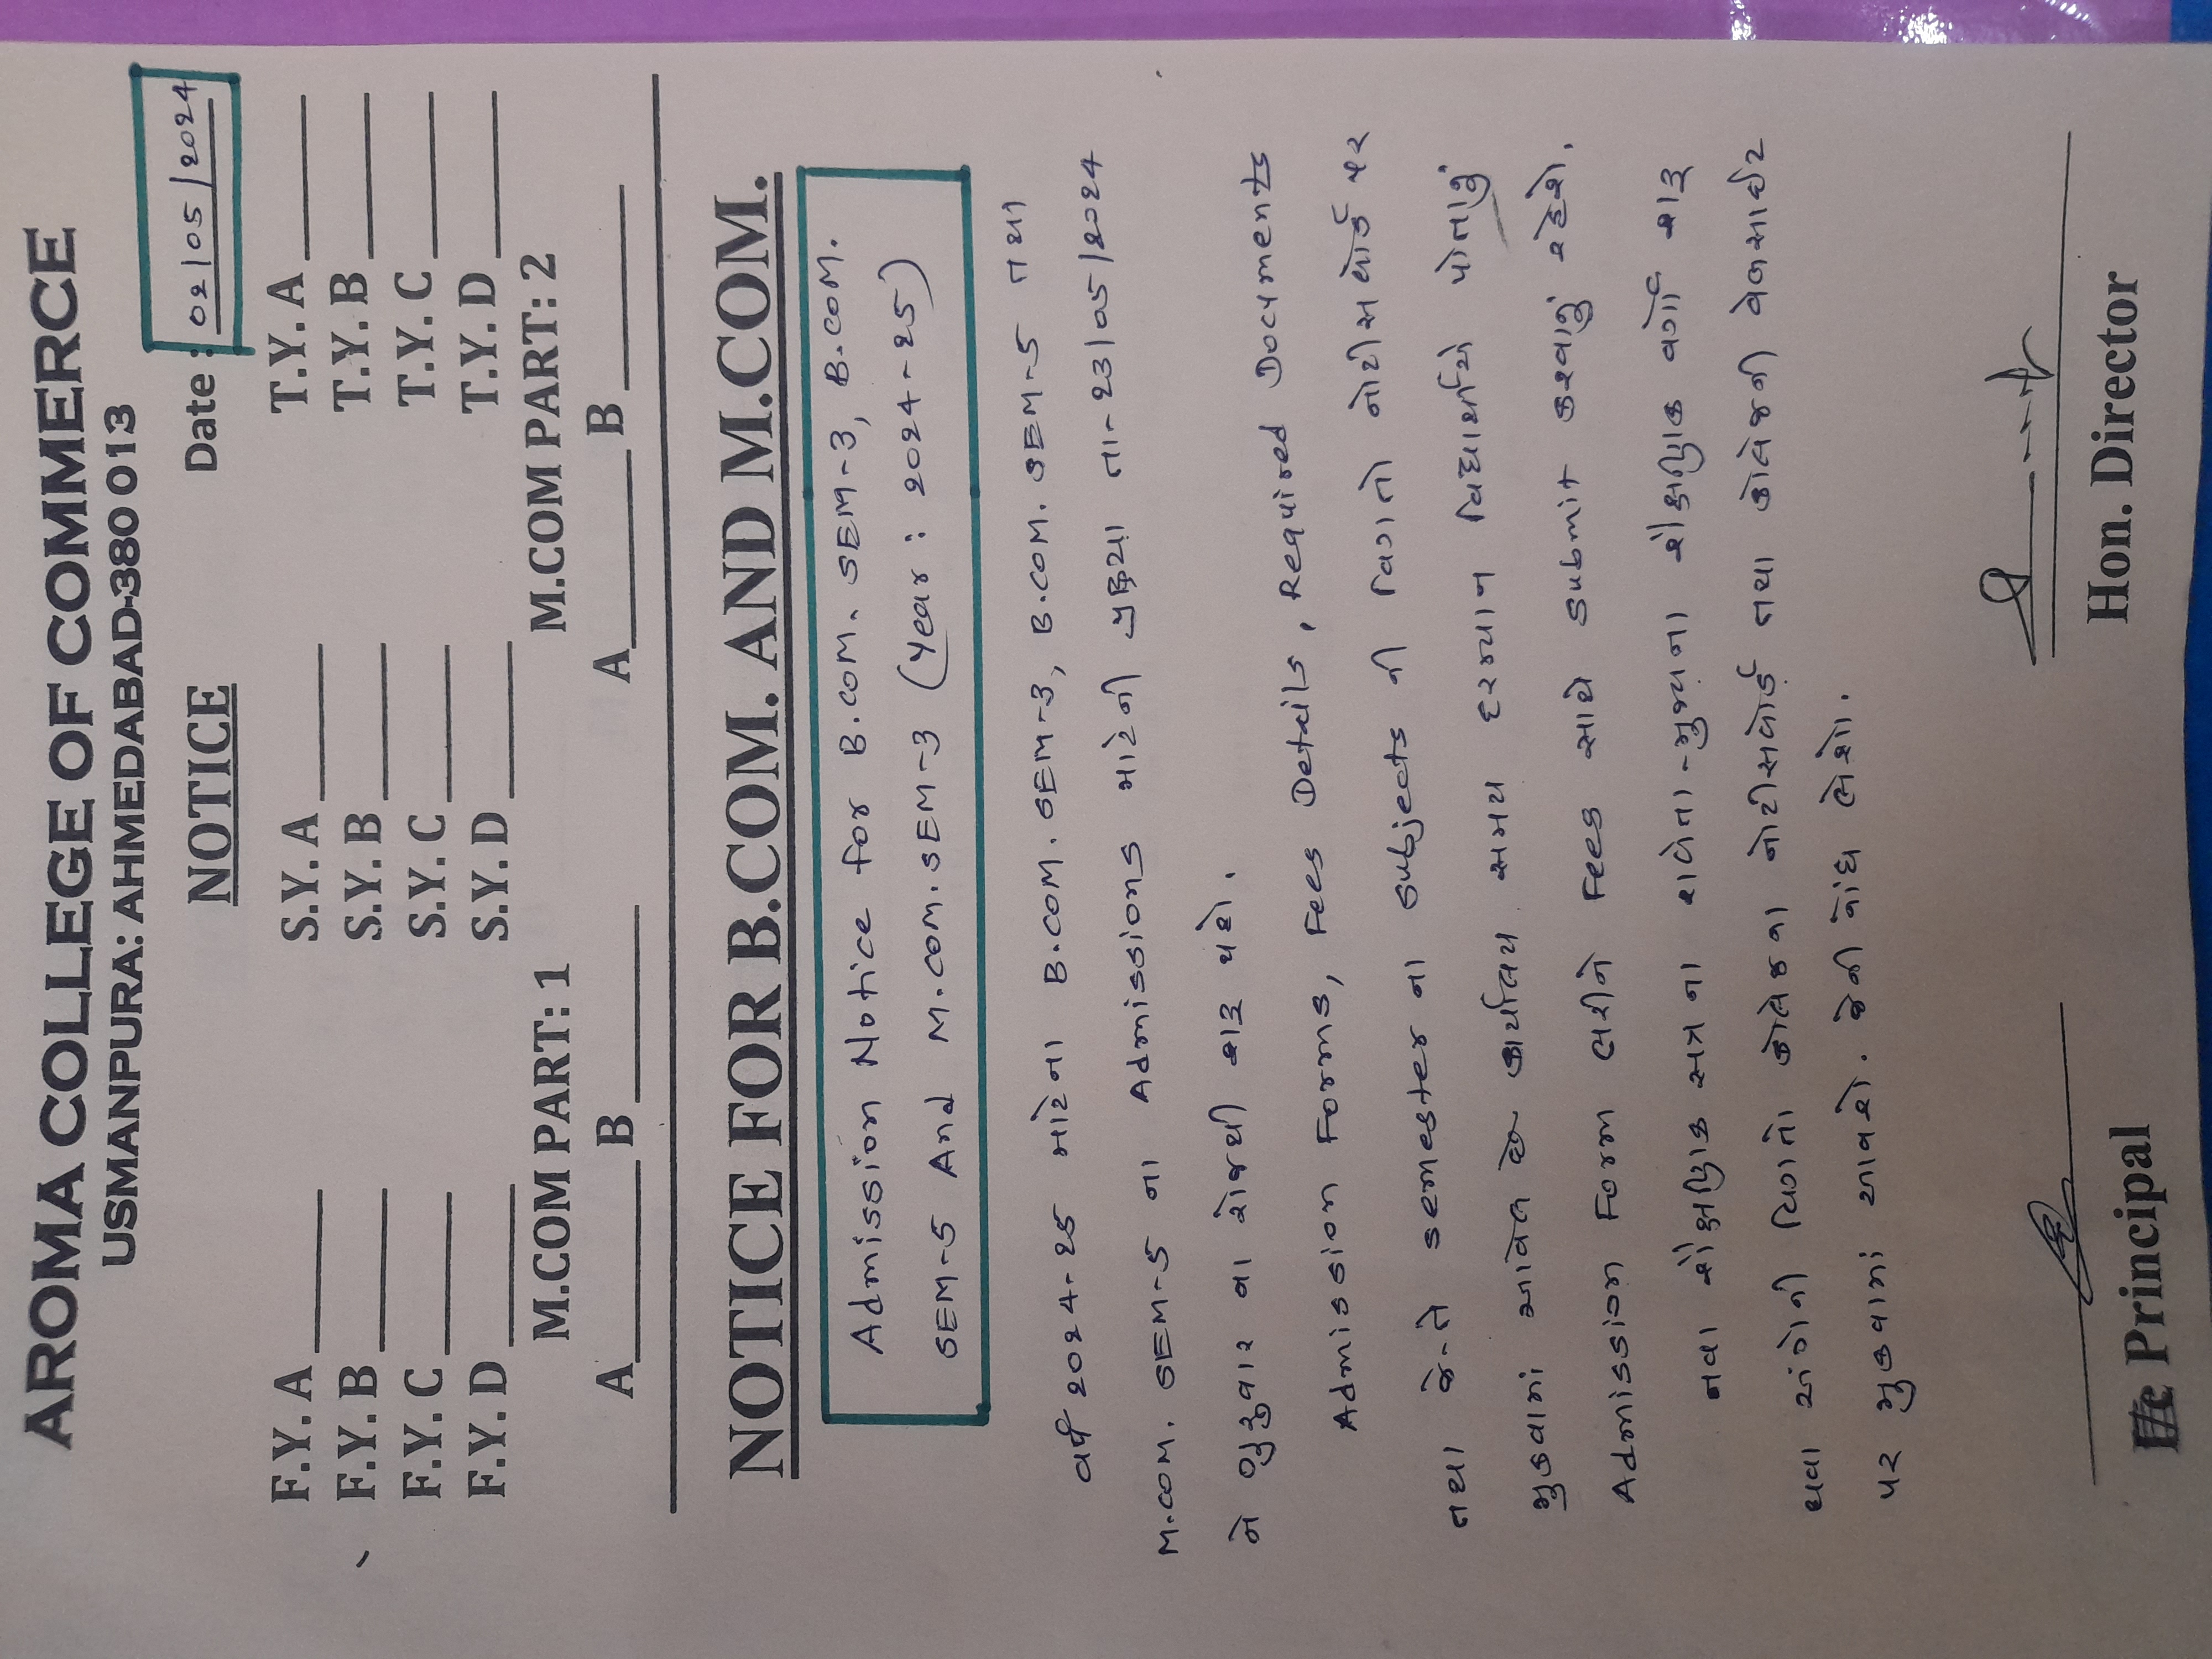 AROMA COLLEGE OF COMMERCE
USMANPURA: AHMEDABAD-380 013
NOTICE Date : 02/05/2024
F.Y. A ______ S.Y. A ______ T.Y. A ______
F.Y. B ______ S.Y. B ______ T.Y. B ______
F.Y. C ______ S.Y. C ______ T.Y. C ______
F.Y. D ______ S.Y. D ______ T.Y. D ______
M.COM PART: 1 M.COM PART: 2
A______ B______ A______ B______
NOTICE FOR B.COM. AND M.COM.
Admission Notice for B.COM. SEM-3, B.COM.
SEM-5 And M.COM. SEM-3 (Year : 2024-25)
વર્ષ 2024-25 માટેના B.COM. SEM-3, B.COM. SEM-5 તથા
M.COM. SEM-5 ના Admissions માટેની પ્રક્રિયા તા-23/05/2024
ને ગુરુવાર ના રોજથી શરૂ થશે.
Admission Forms, Fees Details, Required Documents
તથા જે-તે semester ના subjects ની વિગતો નોટીસબોર્ડ પર
મુકવામાં આવેલ છે. કાર્યાલય સમય દરમ્યાન વિદ્યાર્થીએ પોતાનું
Admission Form ભરીને Fees સાથે submit કરવાનું રહેશે.
નવા શૈક્ષણિક સત્ર ના રાબેતા-મુજબના શૈક્ષણિક વર્ગો શરૂ
થવા અંગેની વિગતો કોલેજના નોટીસબોર્ડ તથા કોલેજની વેબસાઈટ
પર મુકવામાં આવશે. જેની નોંધ લેશો.
Principal Hon. Director